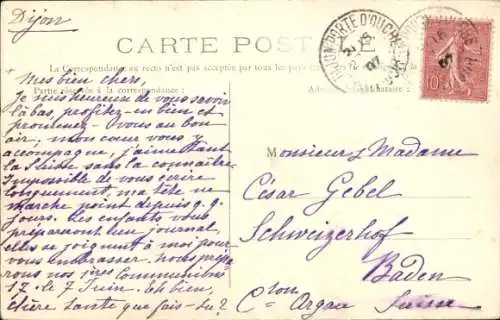 Dijon
CARTE POSTALE
La Correspondance au recto n'est pas acceptée par tous les pays
Partie réservée à la correspondance :
DIJON PORTE D'OUCHE
07
10
Mes bien chers,
Je suis heureuse de vous savoir
là bas, profitez-en bien et
promenez-vous au bon
air. mon cœur vous y
accompagne, j'aime tant
la Suisse sans la connaître.
Impossible de vous écrire
longuement, ma tête ne
marche point depuis q.q.
jours. Les enfants vous
prépareront un journal
elles se joignent à moi pour
vous embrasser. Nous
nos 1ères Communions
17. le 7 Juin. Eh bien,
chère Sante que fais-tu?
Monsieur & Madame
César Gebel
Schweizerhof
Baden
Cton Argau Suisse